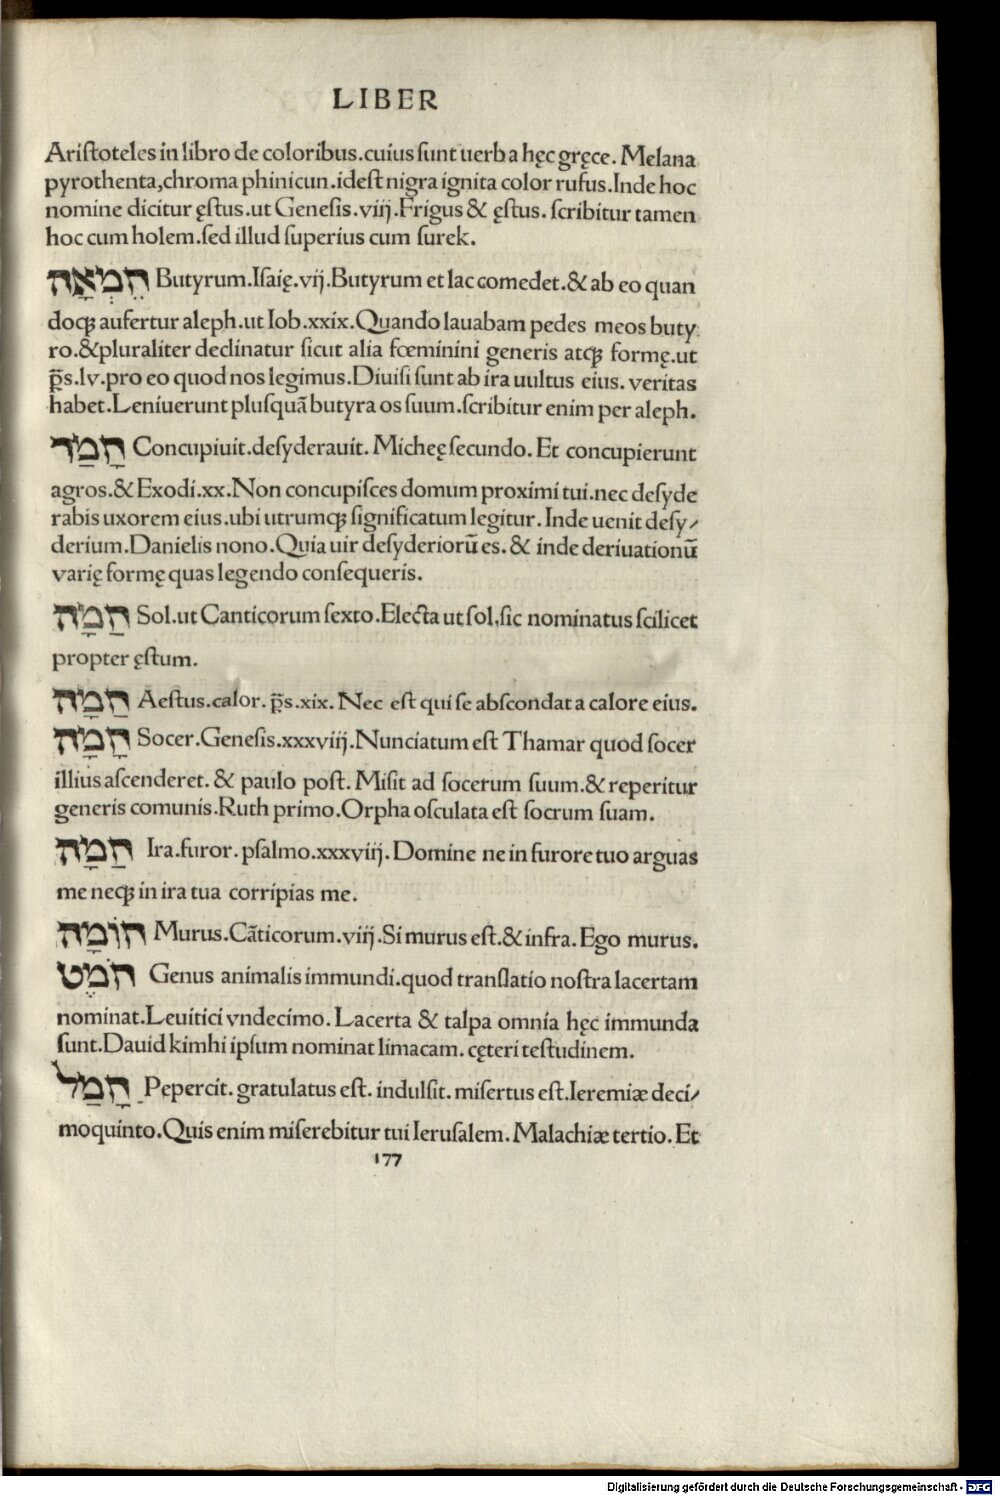 LIBER
Ariſtoteles in libro de coloribus.cuius ſunt uerba hęc gręce. Melana
pyrothenta,chroma phinicun.ideſt nigra ignita color rufus.Inde hoc
nomine dicitur ęſtus.ut Geneſis.viij.Frigus & ęſtus. ſcribitur tamen
hoc cum holem.ſed illud ſuperius cum ſurek.
חֶמְאָה Butyrum.Iſaię.vij.Butyrum et lac comedet.& ab eo quan
doqꝫ aufertur aleph.ut Iob.xxix.Quando lauabam pedes meos buty
ro.&pluraliter declinatur ſicut alia fœminini generis atqꝫ formę.ut
p̄s.lv.pro eo quod nos legimus.Diuiſi ſunt ab ira uultus eius. veritas
habet.Leniuerunt pluſquã butyra os ſuum.ſcribitur enim per aleph.
חָמַד Concupiuit.deſyderauit. Micheę ſecundo. Et concupierunt
agros.& Exodi.xx.Non concupiſces domum proximi tui.nec deſyde
rabis uxorem eius.ubi utrumqꝫ ſignificatum legitur. Inde uenit deſy/
derium.Danielis nono.Quia uir deſyderiorū es. & inde deriuationū
varię formę quas legendo conſequeris.
חַמָּה Sol.ut Canticorum ſexto.Electa ut ſol,ſic nominatus ſcilicet
propter ęſtum.
חַמָּה Aeſtus.calor. p̄s.xix. Nec eſt qui ſe abſcondat a calore eius.
חָמָה Socer.Geneſis.xxxviij.Nunciatum eſt Thamar quod ſocer
illius aſcenderet. & paulo poſt. Miſit ad ſocerum ſuum.& reperitur
generis comunis.Ruth primo.Orpha oſculata eſt ſocrum ſuam.
חַמָה Ira.furor. pſalmo.xxxviij.Domine ne in furore tuo arguas
me neqꝫ in ira tua corripias me.
חוֹמָה Murus.Cãticorum.viij.Si murus eſt.& infra. Ego murus.
חֹמֶט Genus animalis immundi.quod tranſlatio noſtra lacertam
nominat.Leuitici vndecimo. Lacerta & talpa omnia hęc immunda
ſunt.Dauid kimhi ipſum nominat limacam. cęteri teſtudinem.
חָמַל Pepercit. gratulatus eſt. indulſit. miſertus eſt.Ieremiæ deci/
moquinto.Quis enim miſerebitur tui Ieruſalem. Malachiæ tertio. Et
177
Digitalisierung gefördert durch die Deutsche Forschungsgemeinschaft - DFG